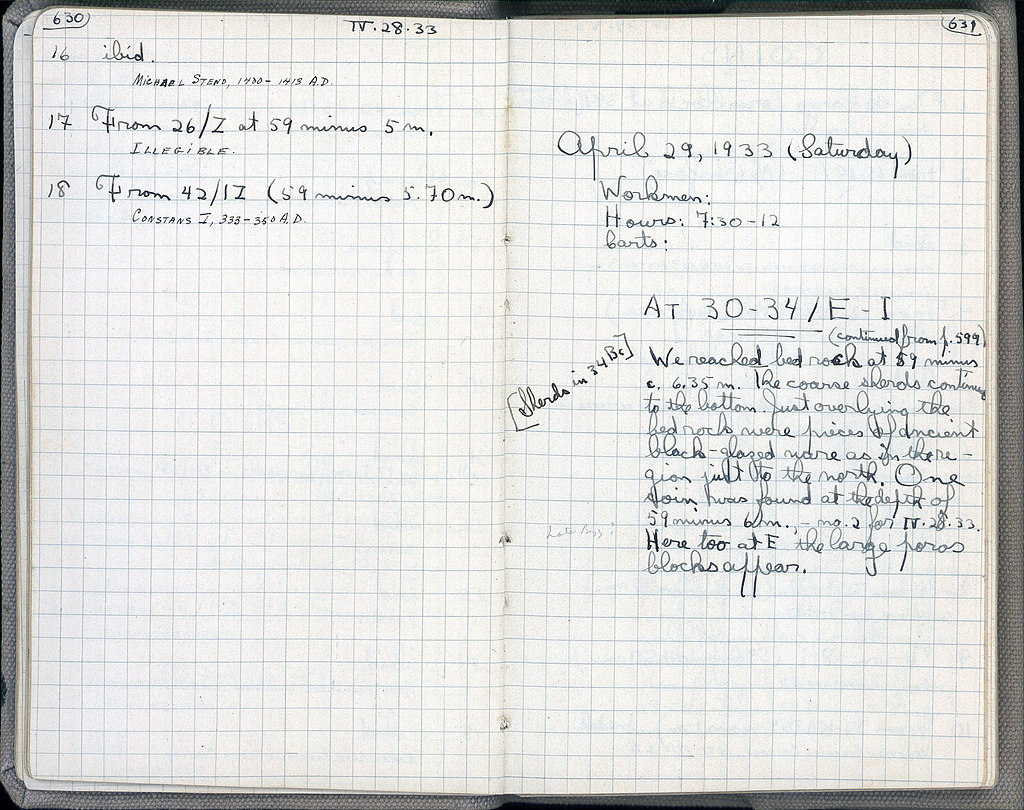 630
IV.28.33
16 ibid.
MICHAEL STENO, 1400-1413 A.D.
17 From 26/Z at 59 minus 5 m.
ILLEGIBLE.
18 From 42/IZ (59 minus 5.70 m.)
CONSTANS I, 333-350 A.D.
631
April 29, 1933 (Saturday)
Workmen:
Hours: 7:30-12
Carts:
AT 30-34/E-I
(continued from p. 599)
[Sherds in 34 Bc]
We reached bed rock at 59 minus
c. 6.35 m. The coarse sherds continue
to the bottom. Just overlying the
bed rock were pieces of ancient
black-glazed ware as in the re-
gion just to the north. One
coin was found at the depth of
59 minus 6 m., - no. 2 for IV.28.33.
Late Byz?
Here too at E the large poros
blocks appear.